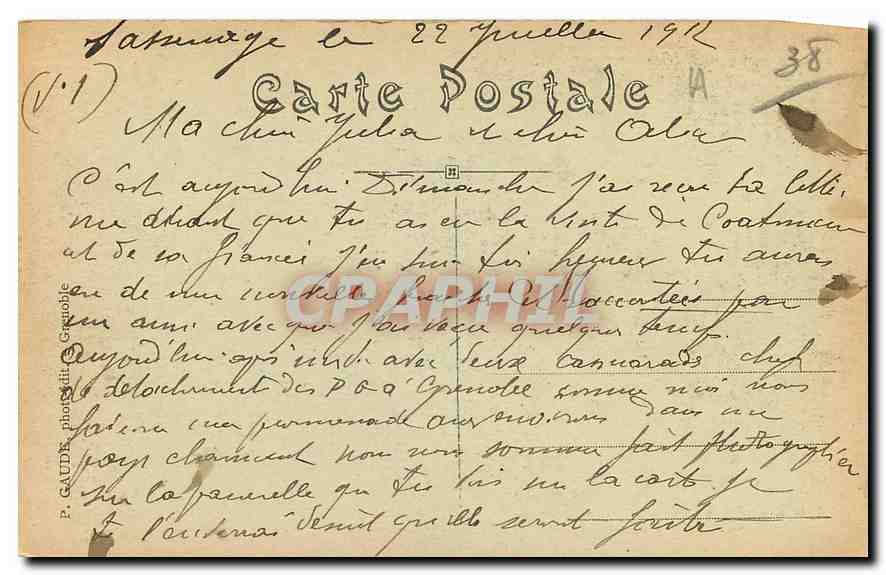 Sassenage le 22 Juillet 191
(V.1)
38
Carte Postale
A
Ma chère Julia et chère
C'est aujourd'hui Dimanche j'ai reçu ta lettre
me disant que tu as eu la visite de
et de sa fiancée j'en suis heureux tu auras
eu de mes nouvelles par
un ami avec qui j'ai vécu quelque temps
Aujourd'hui après midi avec deux camarades chefs
de détachements des P G à Grenoble comme moi nous
faisons une promenade aux environs dans un
pays charmant nous nous sommes fait photographier
sur la passerelle que tu vois sur la carte je
te l'enverrai dès qu'elle sera faite
CPAPHIL
P. GAUDE, phot. édit. Grenoble